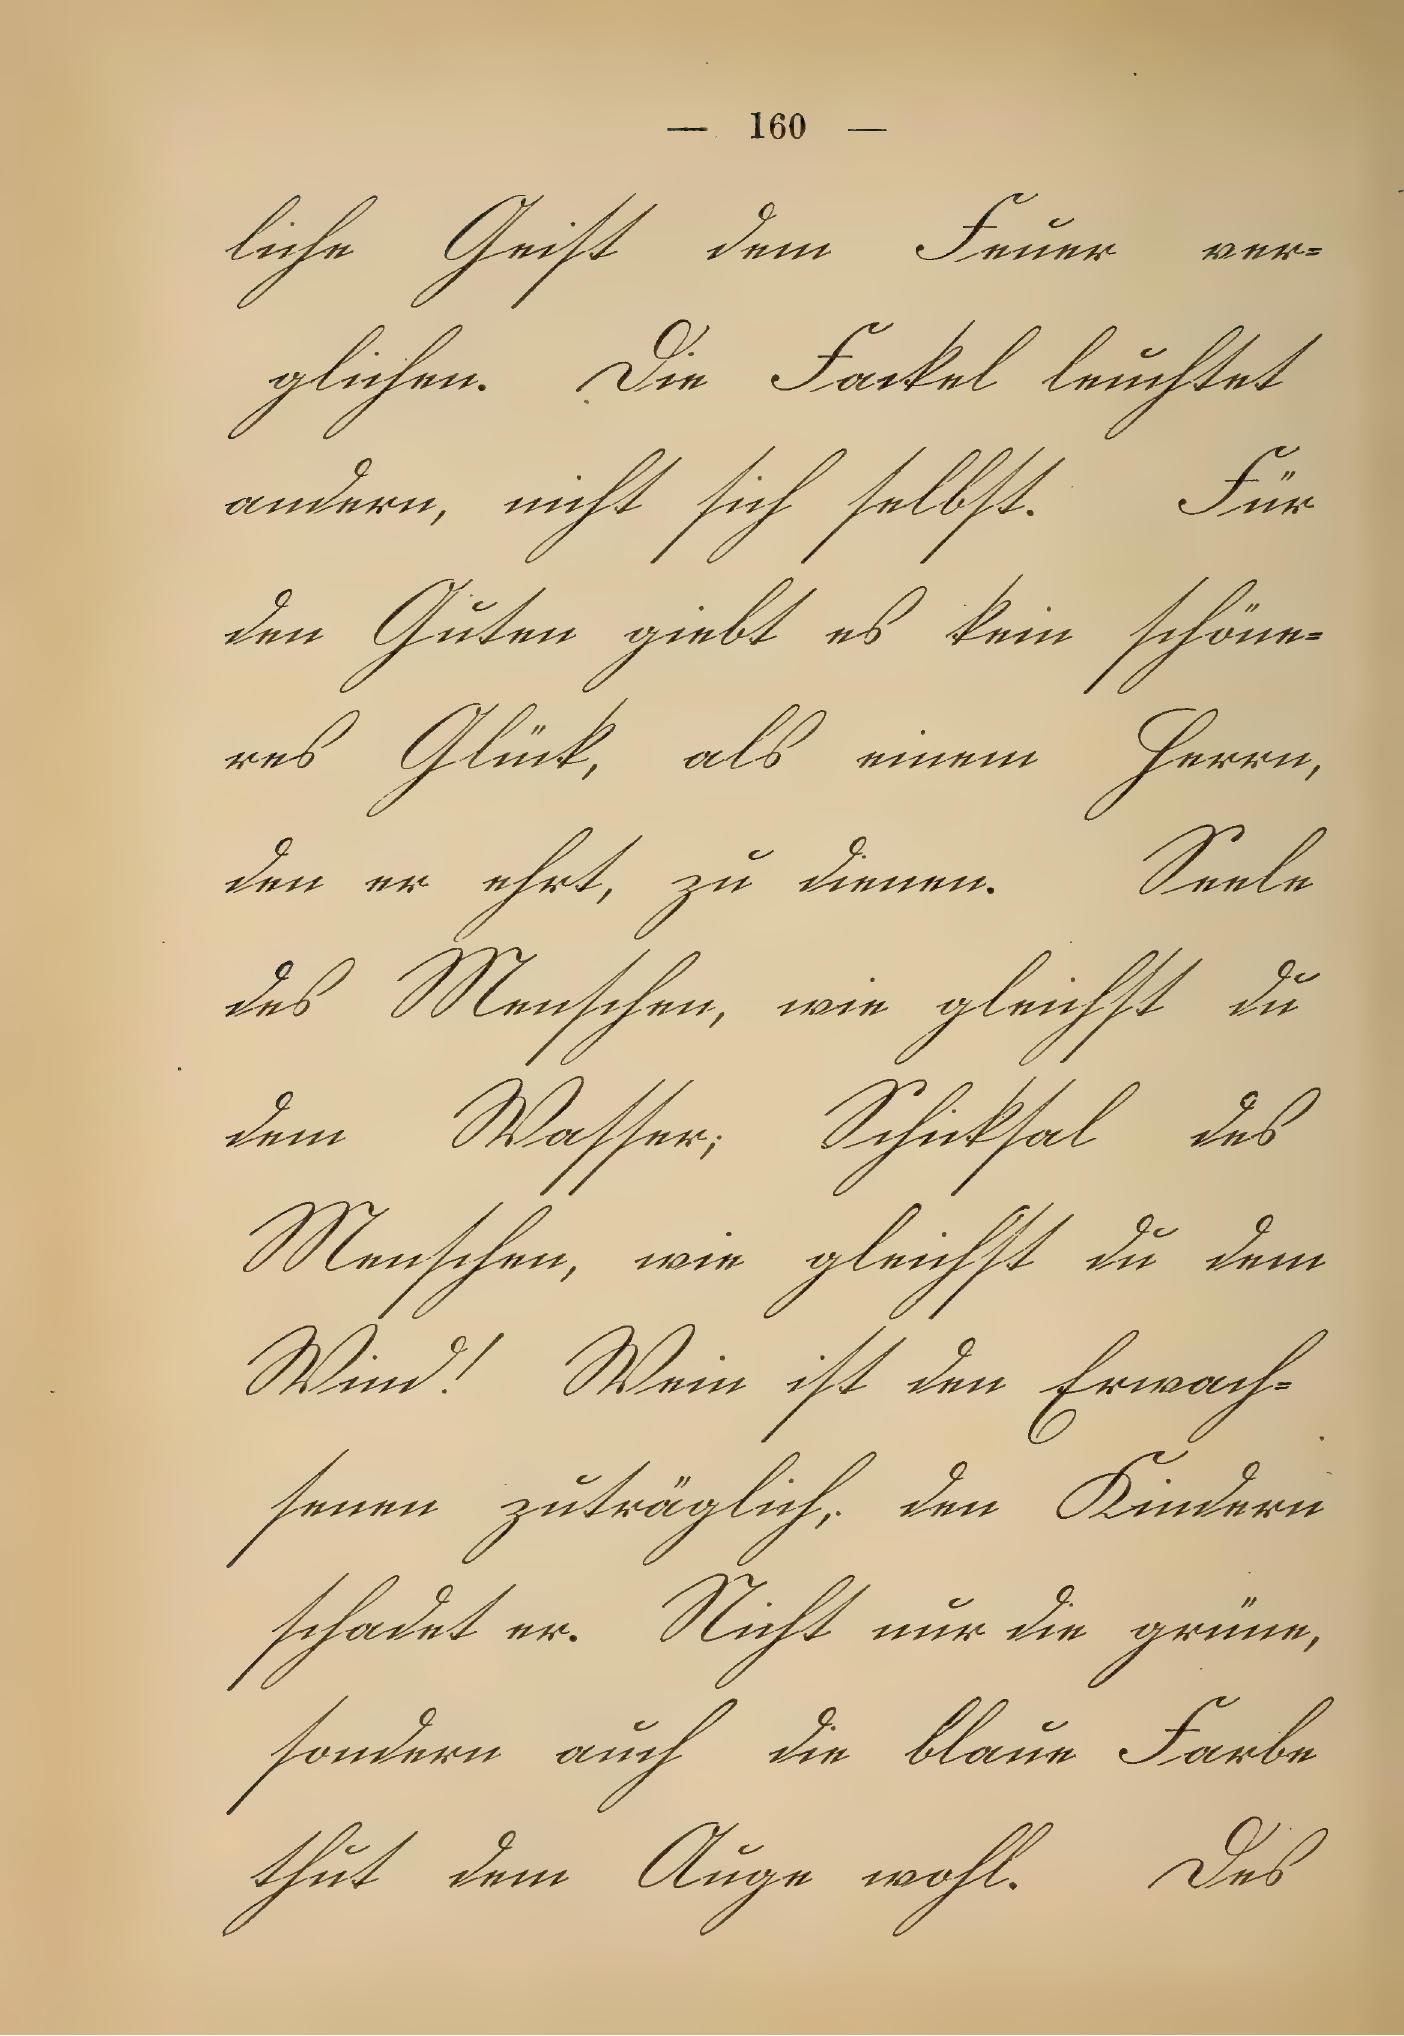 — 160 —
liche Geist dem Feuer ver=
glichen. Die Fackel leuchtet
andern, nicht sich selbst. Für
den Guten giebt es kein schöne=
res Glück, als einem Herrn,
den er ehrt, zu dienen. Seele
des Menschen, wie gleichst du
dem Wasser; Schicksal des
Menschen, wie gleichst du dem
Wind! Wein ist den Erwach=
senen zuträglich, den Kindern
schadet er. Nicht nur die grüne,
sondern auch die blaue Farbe
thut dem Auge wohl. Des